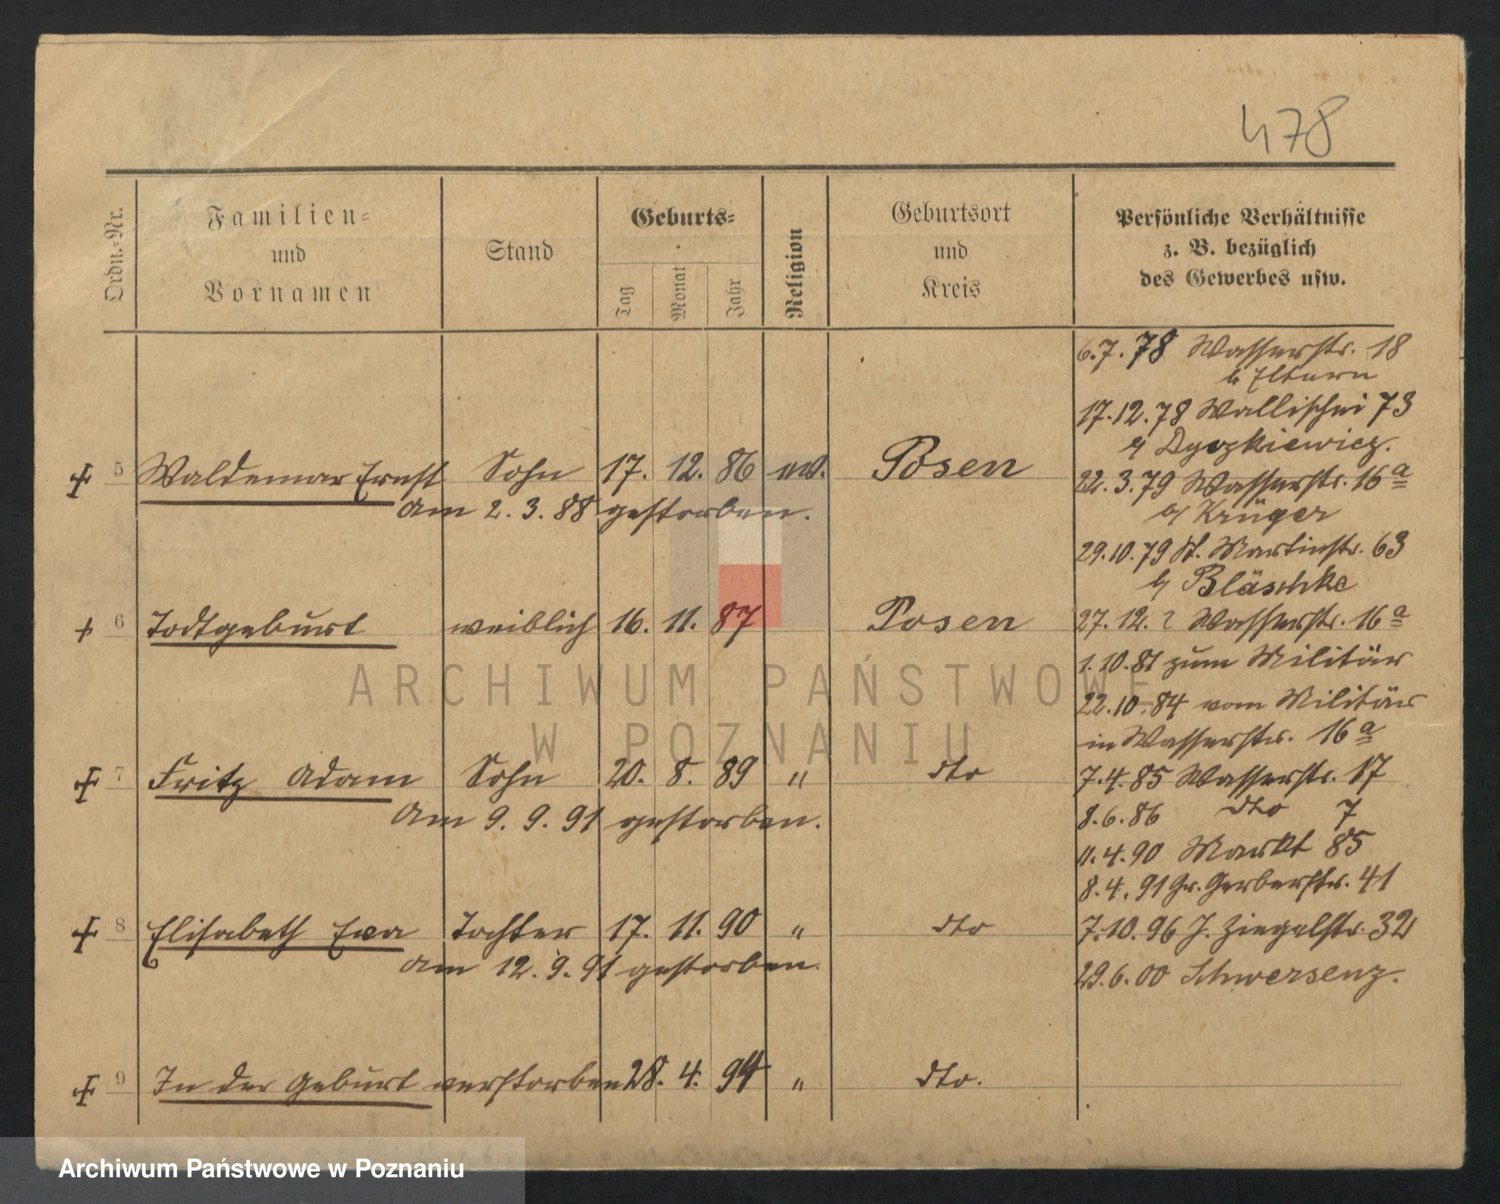 478
Ordn.-Nr.
Familien-
und
Vornamen
Stand
Geburts-
Tag
Monat
Jahr
Religion
Geburtsort
und
Kreis
Persönliche Verhältnisse
z. B. bezüglich
des Gewerbes usw.
5 Waldemar Ernst Sohn 17. 12. 86 ev. Posen
am 2. 3. 88 gestorben.
6 Todtgeburt weiblich 16. 11. 87 Posen
7 Fritz Adam Sohn 20. 8. 89 " dto
am 9. 9. 91 gestorben.
8 Elisabeth Eva Tochter 17. 11. 90 " dto
am 12. 9. 91 gestorben.
9 In der Geburt verstorben 28. 4. 94 " dto.
6.7.78 Wasserstr. 18
b Eltern
17.12.78 Wallischei 73
22.3.79 Wasserstr. 16a
b/ Krüger
29.10.79 St. Martinstr. 63
b/ Bläschke
27.12. ? Wasserstr. 16a
1.10.81 zum Militär
22.10.84 vom Militär
in Wasserstr. 16a
7.4.85 Wasserstr. 17
8.6.86 dto 7
11.4.90 Markt 85
8.4.91 Gr. Gerberstr. 41
7.10.96 J. Ziegelstr. 32
29.6.00 Schwersenz.
ARCHIWUM PAŃSTWOWE
W POZNANIU
Archiwum Państwowe w Poznaniu